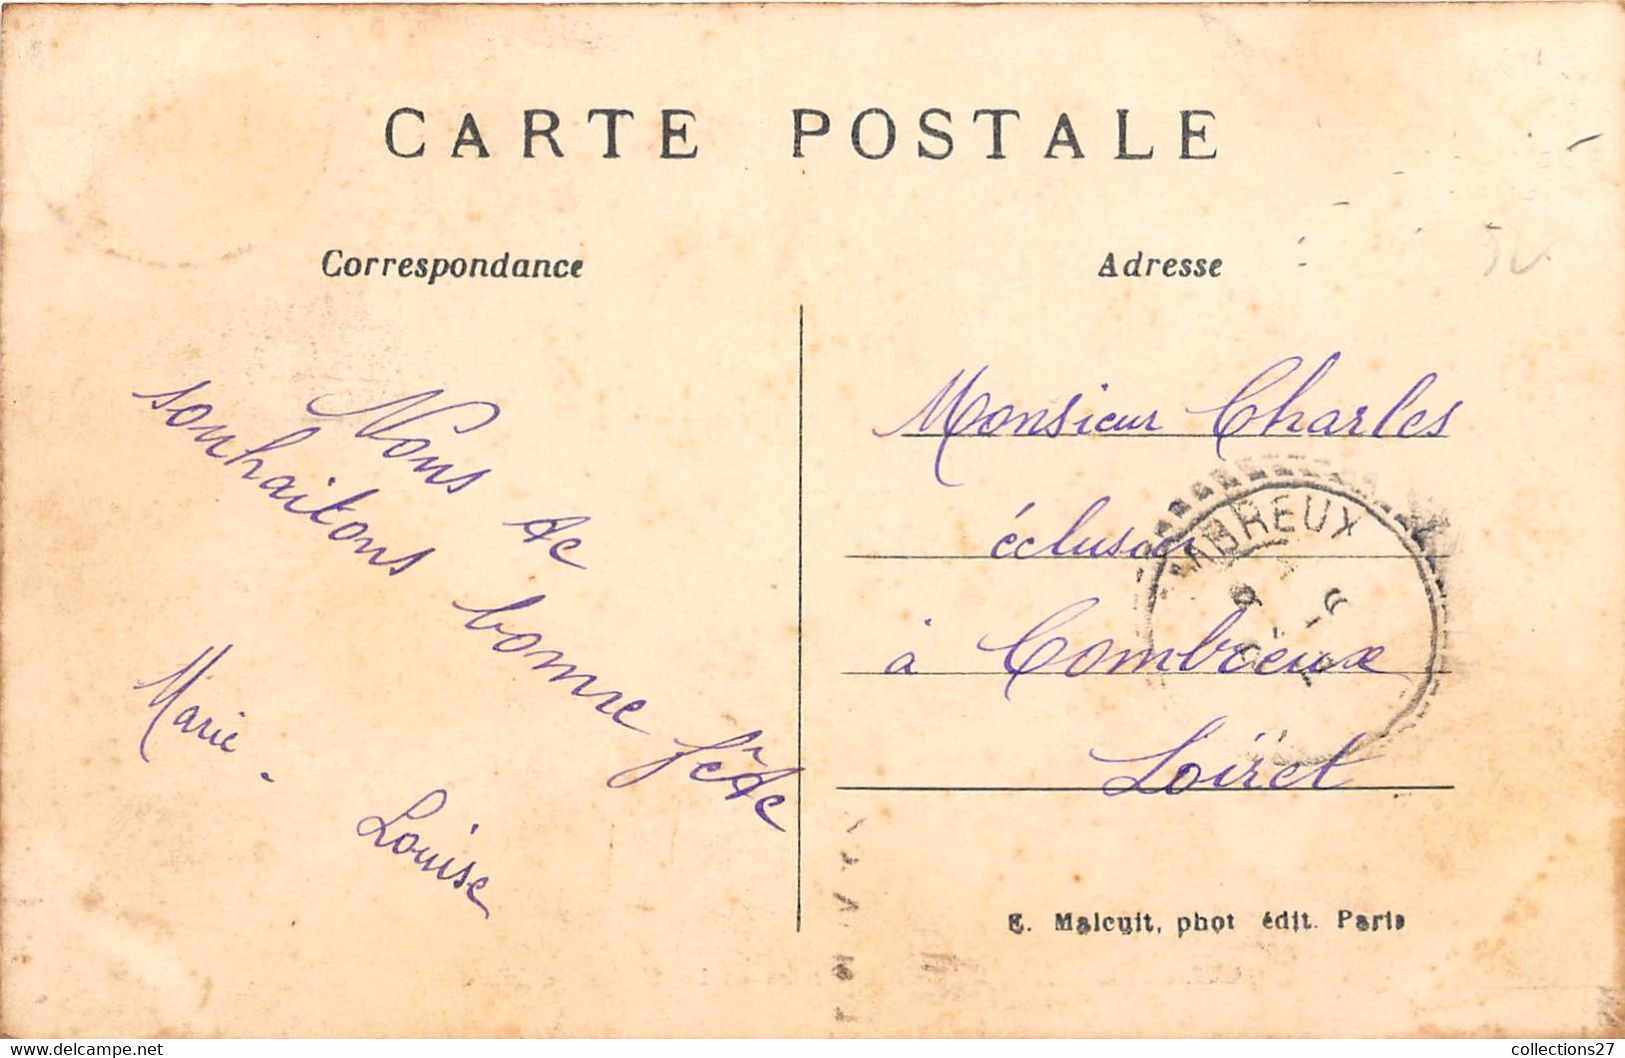 CARTE POSTALE
Correspondance
Nous te
souhaitons bonne fête
Marie - Louise
Adresse
Monsieur Charles
éclusier
à Combreux
Loiret
MBREUX
E. Malcuit, phot édit. Paris
52
collections27